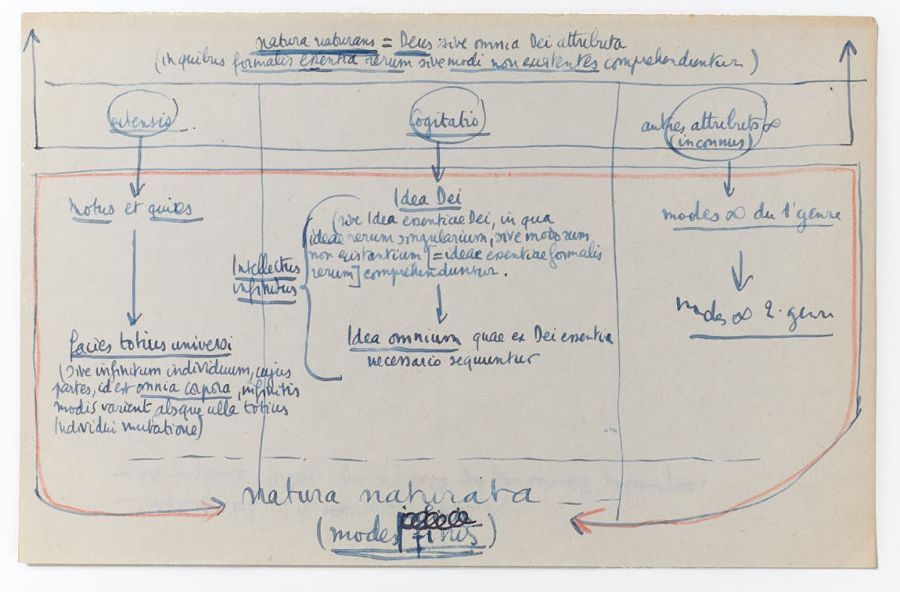 natura naturans = Deus sive omnia Dei attributa
(in quibus formalis essentia rerum sive modi non existentes comprehenduntur)
extensio
Cogitatio
autres attributs ∞
(inconnus)
Motus et quies
Idea Dei
(sive Idea essentiae Dei, in qua
ideae rerum singularium, sive modorum
non existantium [= ideae essentiae formalis
rerum] comprehenduntur.
Intellectus
infinitus
modes ∞ du 1er genre
modes ∞ 2e genre
facies totius universi
(sive infinitum individuum, cujus
partes, id est omnia corpora, infinitis
modis varient absque ulla totius
Individui mutatione)
Idea omnium quae ex Dei essentia
necessario sequuntur
natura naturata
(modes finis)